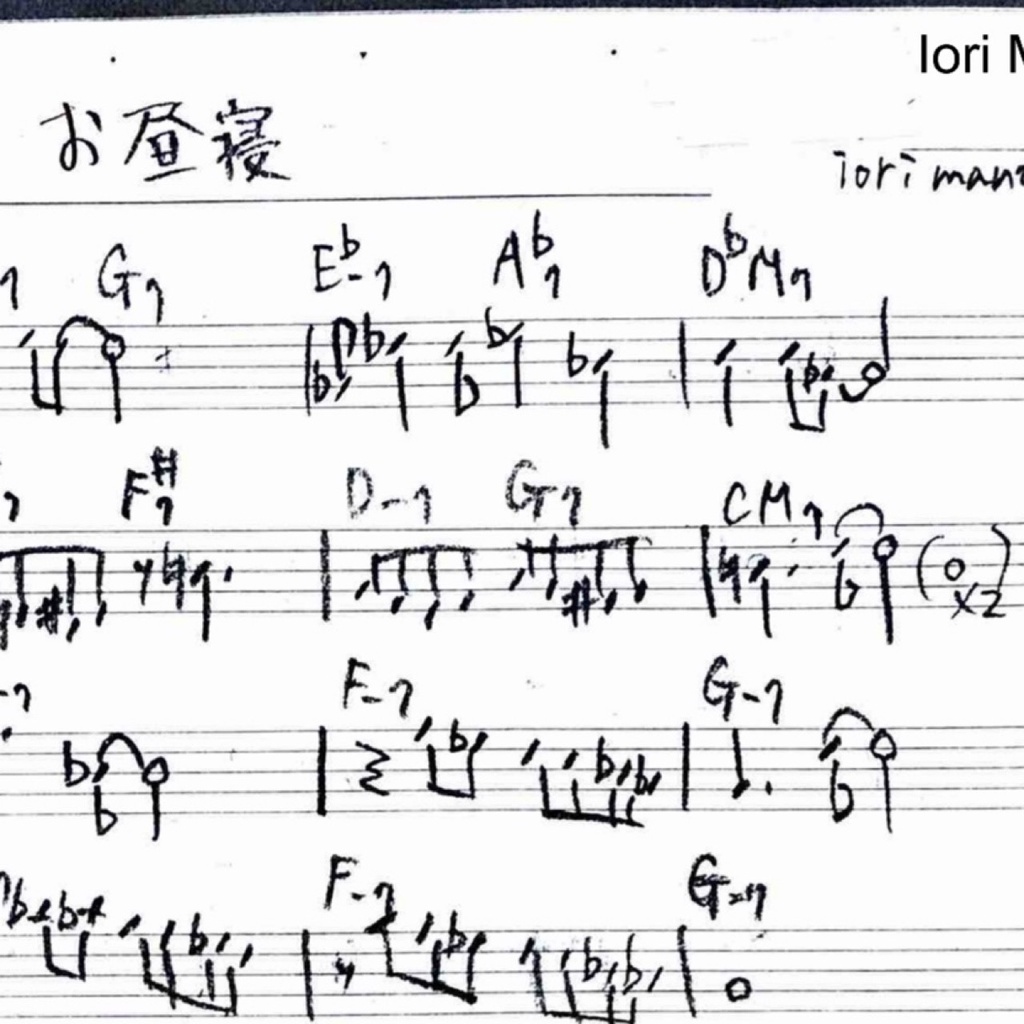 Iori M
お昼寝
iori man
7 G7 E♭-7 A♭7 D♭M7
7 F#7 D-7 G7 CM7
(o x2)
-7 F-7 G-7
F-7 G-7